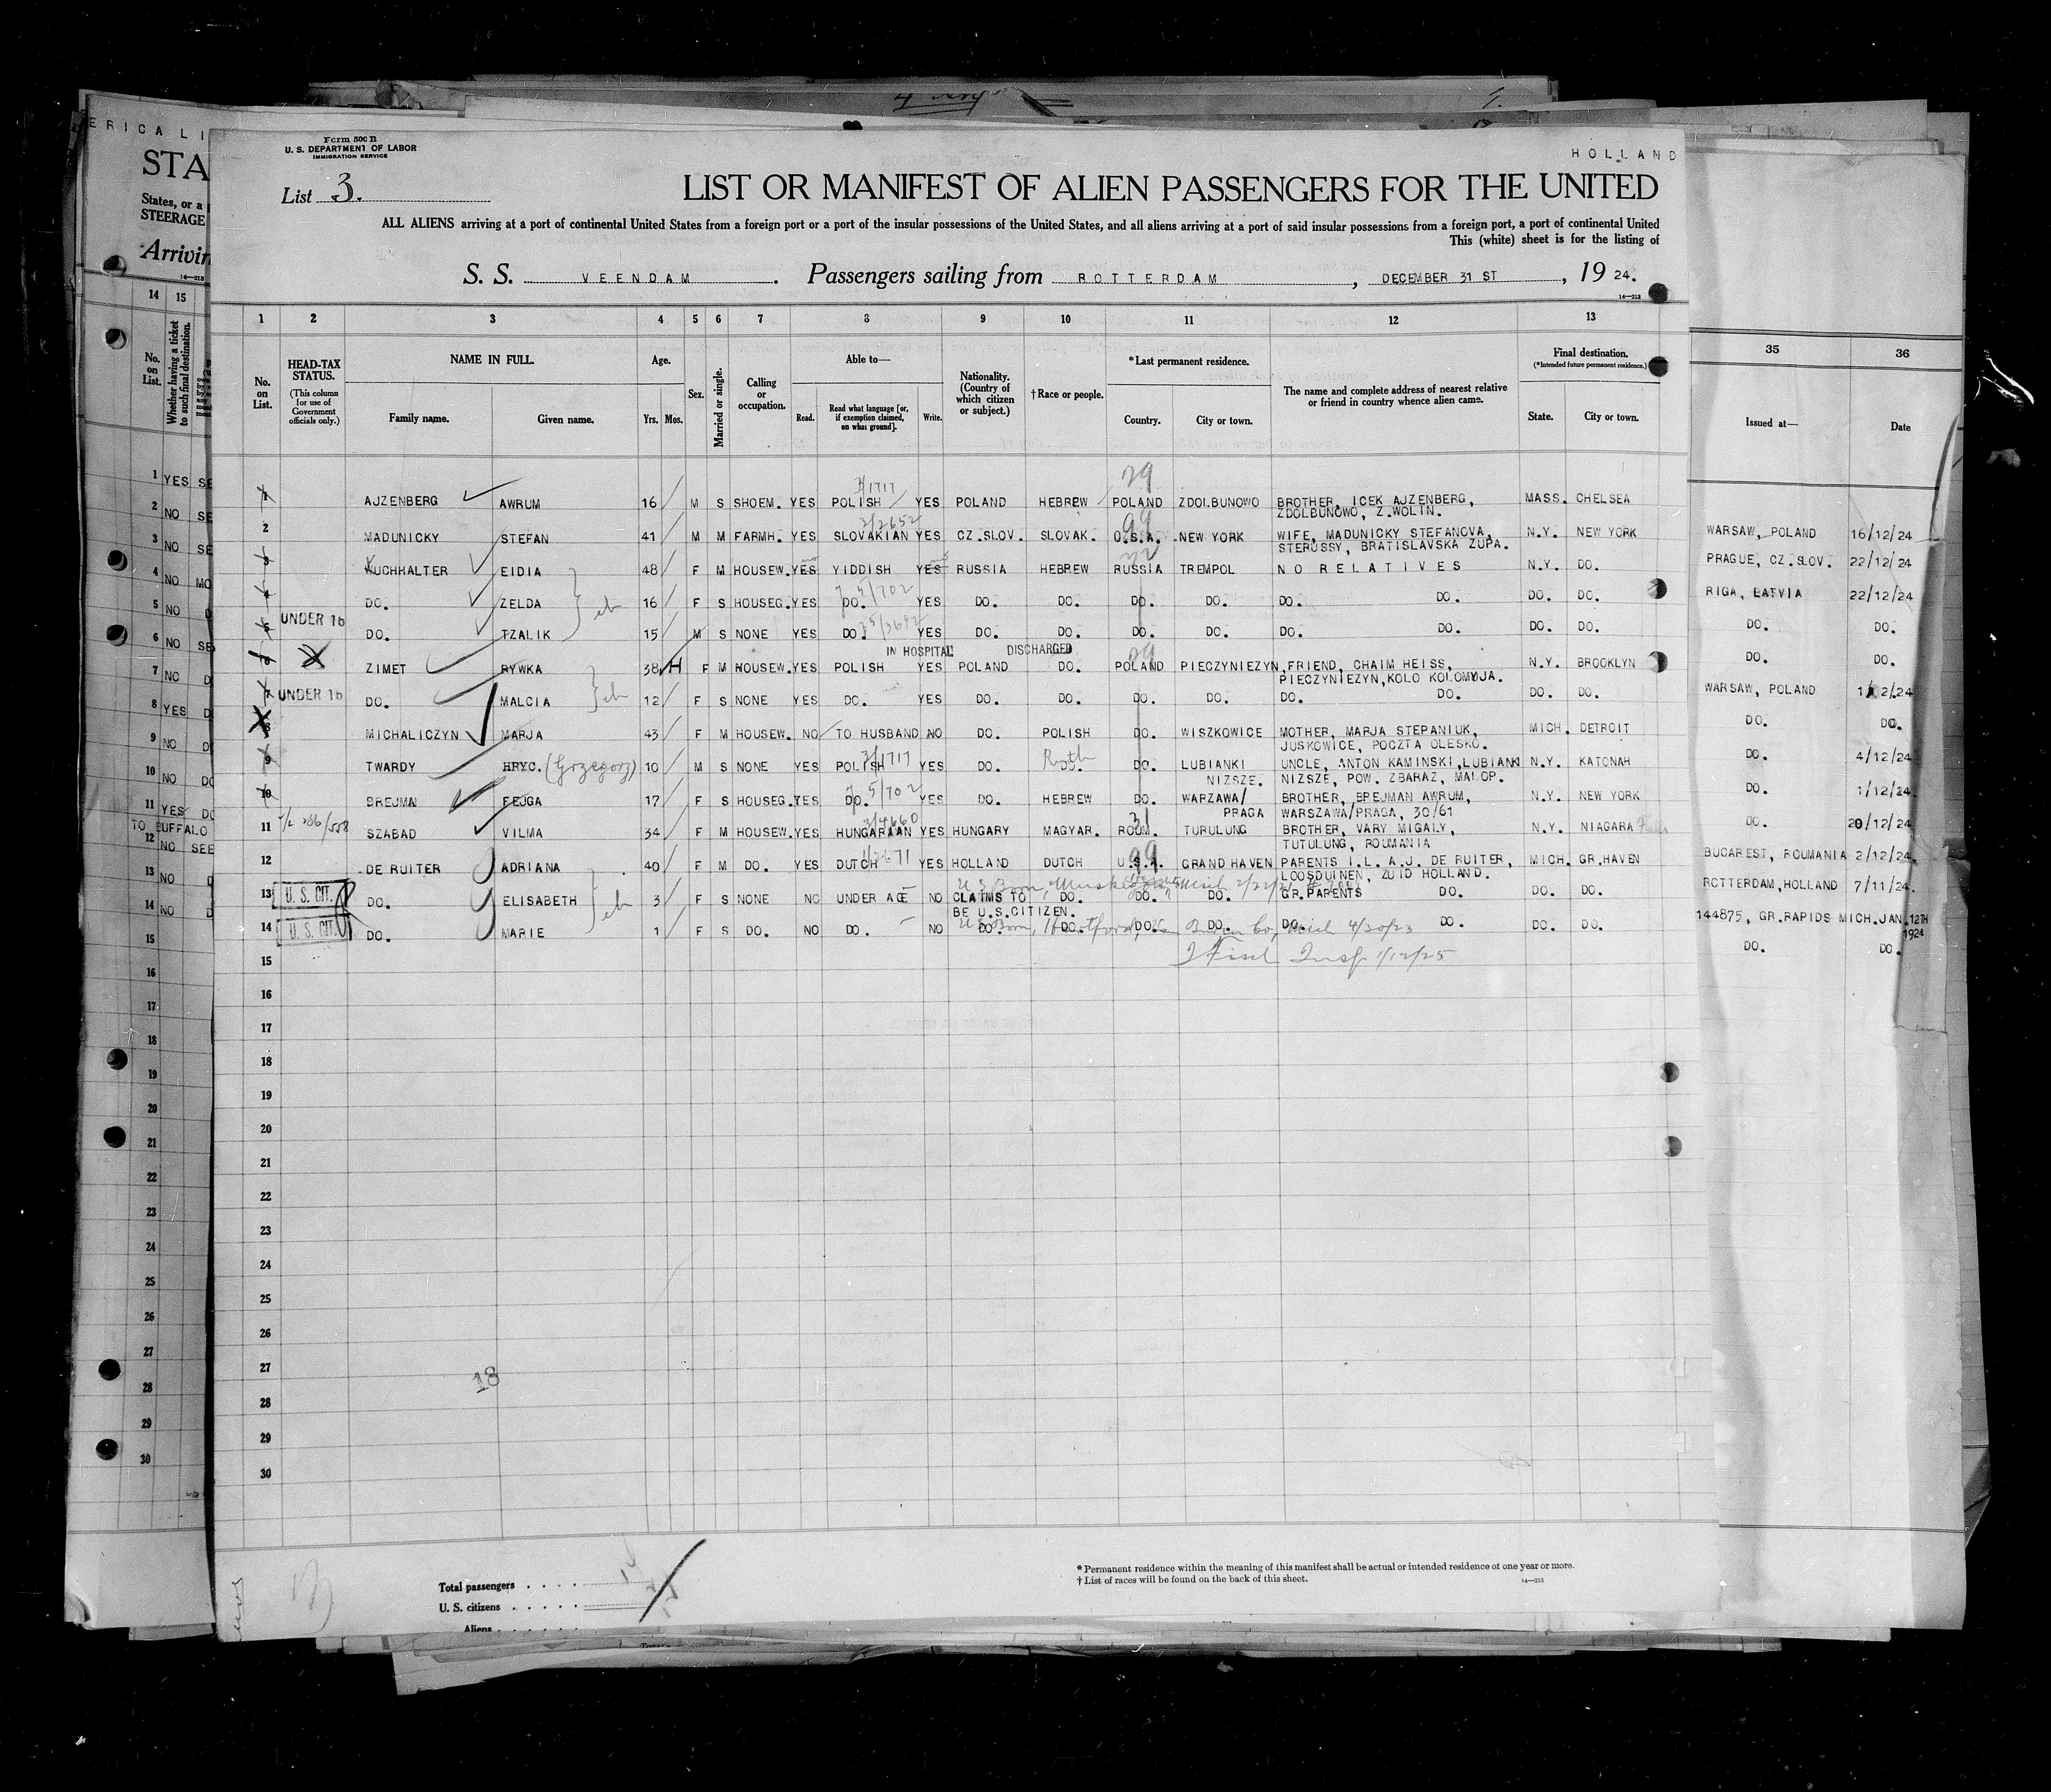 4
ERICA LI
STA
States, or a
STEERAGE
Arrivin
14—213
14 15
No. on List.
Whether having a ticket to such final destination.
1 YES SE
2 NO SE
3 NO SE
4 NO MO
5 NO D
6 NO SE
7 NO D
8 YES D
9 NO D
10 NO DO
11 YES DO
TO BUFFALO
12 NO SEE
13 NO D
14 NO D
15
16
17
18
19
20
21
22
23
24
25
26
27
28
29
30
Form 500 B
U. S. DEPARTMENT OF LABOR
IMMIGRATION SERVICE
HOLLAND
List 3.
LIST OR MANIFEST OF ALIEN PASSENGERS FOR THE UNITED
ALL ALIENS arriving at a port of continental United States from a foreign port or a port of the insular possessions of the United States, and all aliens arriving at a port of said insular possessions from a foreign port, a port of continental United
This (white) sheet is for the listing of
S. S. VEENDAM. Passengers sailing from ROTTERDAM, DECEMBER 31 ST, 19 24.
14—213
1 2 3 4 5 6 7 8 9 10 11 12 13
No. on List.
HEAD-TAX STATUS.
(This column for use of Government officials only.)
NAME IN FULL.
Family name. Given name.
Age.
Yrs. Mos.
Sex.
Married or single.
Calling or occupation.
Able to—
Read. Read what language [or, if exemption claimed, on what ground]. Write.
Nationality. (Country of which citizen or subject.)
†Race or people.
*Last permanent residence.
Country. City or town.
The name and complete address of nearest relative or friend in country whence alien came.
Final destination.
(*Intended future permanent residence.)
State. City or town.
35 36
Issued at— Date
29
3/1717
1 AJZENBERG AWRUM 16 M S SHOEM. YES POLISH YES POLAND HEBREW POLAND ZDOLBUNOWO BROTHER, ICEK AJZENBERG, MASS. CHELSEA
ZDOLBUNOWO, Z.WOLIN.
2/2652 99
2 MADUNICKY STEFAN 41 M M FARMH. YES SLOVAKIAN YES CZ.SLOV. SLOVAK. U.S.A. NEW YORK WIFE, MADUNICKY STEFANOVA, N.Y. NEW YORK
STERUSSY, BRATISLAVSKA ZUPA.
WARSAW, POLAND 16/12/24
3 KUCHHALTER EIDIA 48 F M HOUSEW. YES no YIDDISH YES no RUSSIA HEBREW RUSSIA TREMPOL NO RELATIVES N.Y. DO.
PRAGUE, CZ.SLOV. 22/12/24
5/702
4 DO. ZELDA 16 F S HOUSEG. YES DO. YES DO. DO. DO. DO. DO. DO. DO. DO.
RIGA, LATVIA 22/12/24
5 UNDER 16 DO. TZALIK 15 M S NONE YES DO. YES DO. DO. DO. DO. DO. DO. DO. DO.
DO. DO.
IN HOSPITAL DISCHARGED
6 ZIMET RYWKA 38 H F M HOUSEW. YES POLISH YES POLAND DO. POLAND PIECZYNIEZYN, FRIEND, CHAIM HEISS, N.Y. BROOKLYN
PIECZYNIEZYN, KOLO KOLOMYJA.
DO. DO.
7 UNDER 16 DO. MALCIA 12 F S NONE YES DO. YES DO. DO. DO. DO. DO. DO. DO. DO.
WARSAW, POLAND
8 MICHALICZYN MARJA 43 F M HOUSEW. NO TO HUSBAND NO DO. POLISH DO. WISZKOWICE MOTHER, MARJA STEPANIUK, MICH. DETROIT
JUSKOWICE, POCZTA OLESKO.
DO. DO.
3/1717
9 TWARDY HRYC. (Grzegorz) 10 M S NONE YES POLISH YES DO. Ruth DO. LUBIANKI UNCLE, ANTON KAMINSKI, LUBIANKI N.Y. KATONAH
NIZSZE. NIZSZE, POW. ZBARAZ, MALOP.
DO. 4/12/24
5/702
10 BREJMAN FEJGA 17 F S HOUSEG. YES DO. YES DO. HEBREW DO. WARZAWA/ BROTHER, BREJMAN AWRUM, N.Y. NEW YORK
PRAGA WARSZAWA/PRAGA, 30/61
DO. 1/12/24
31
11 SZABAD VILMA 34 F M HOUSEW. YES HUNGARIAN YES HUNGARY MAGYAR. ROUM. TURULUNG BROTHER, VARY MIGALY, N.Y. NIAGARA Falls
TUTULUNG, ROUMANIA
DO. 20/12/24
99
12 DE RUITER ADRIANA 40 F M DO. YES DUTCH YES HOLLAND DUTCH U.S.A. GRAND HAVEN PARENTS I.L. A.J. DE RUITER, MICH. GR.HAVEN
LOOSDUINEN, ZUID HOLLAND.
BUCAREST, ROUMANIA 2/12/24
13 U. S. CIT. DO. ELISABETH 3 F S NONE NO UNDER AGE NO CLAIMS TO DO. DO. DO. GR.PARENTS DO. DO. DO.
BE U.S.CITIZEN.
ROTTERDAM, HOLLAND 7/11/24
14 U. S. CIT. DO. MARIE 1 F S DO. NO DO. NO DO. DO. DO. DO. DO. DO. DO. DO.
U S Born, Hartford, Van Buren Co, Mich 4/30/23
144875, GR.RAPIDS MICH. JAN. 12TH 1924
DO. DO.
15 Insp 1/12/25
16
17
18
19
20
21
22
23
24
25
26
27
18
28
29
30
Total passengers . . . .
U. S. citizens . . . . .
Aliens . . . . . .
* Permanent residence within the meaning of this manifest shall be actual or intended residence of one year or more.
† List of races will be found on the back of this sheet.
14—213